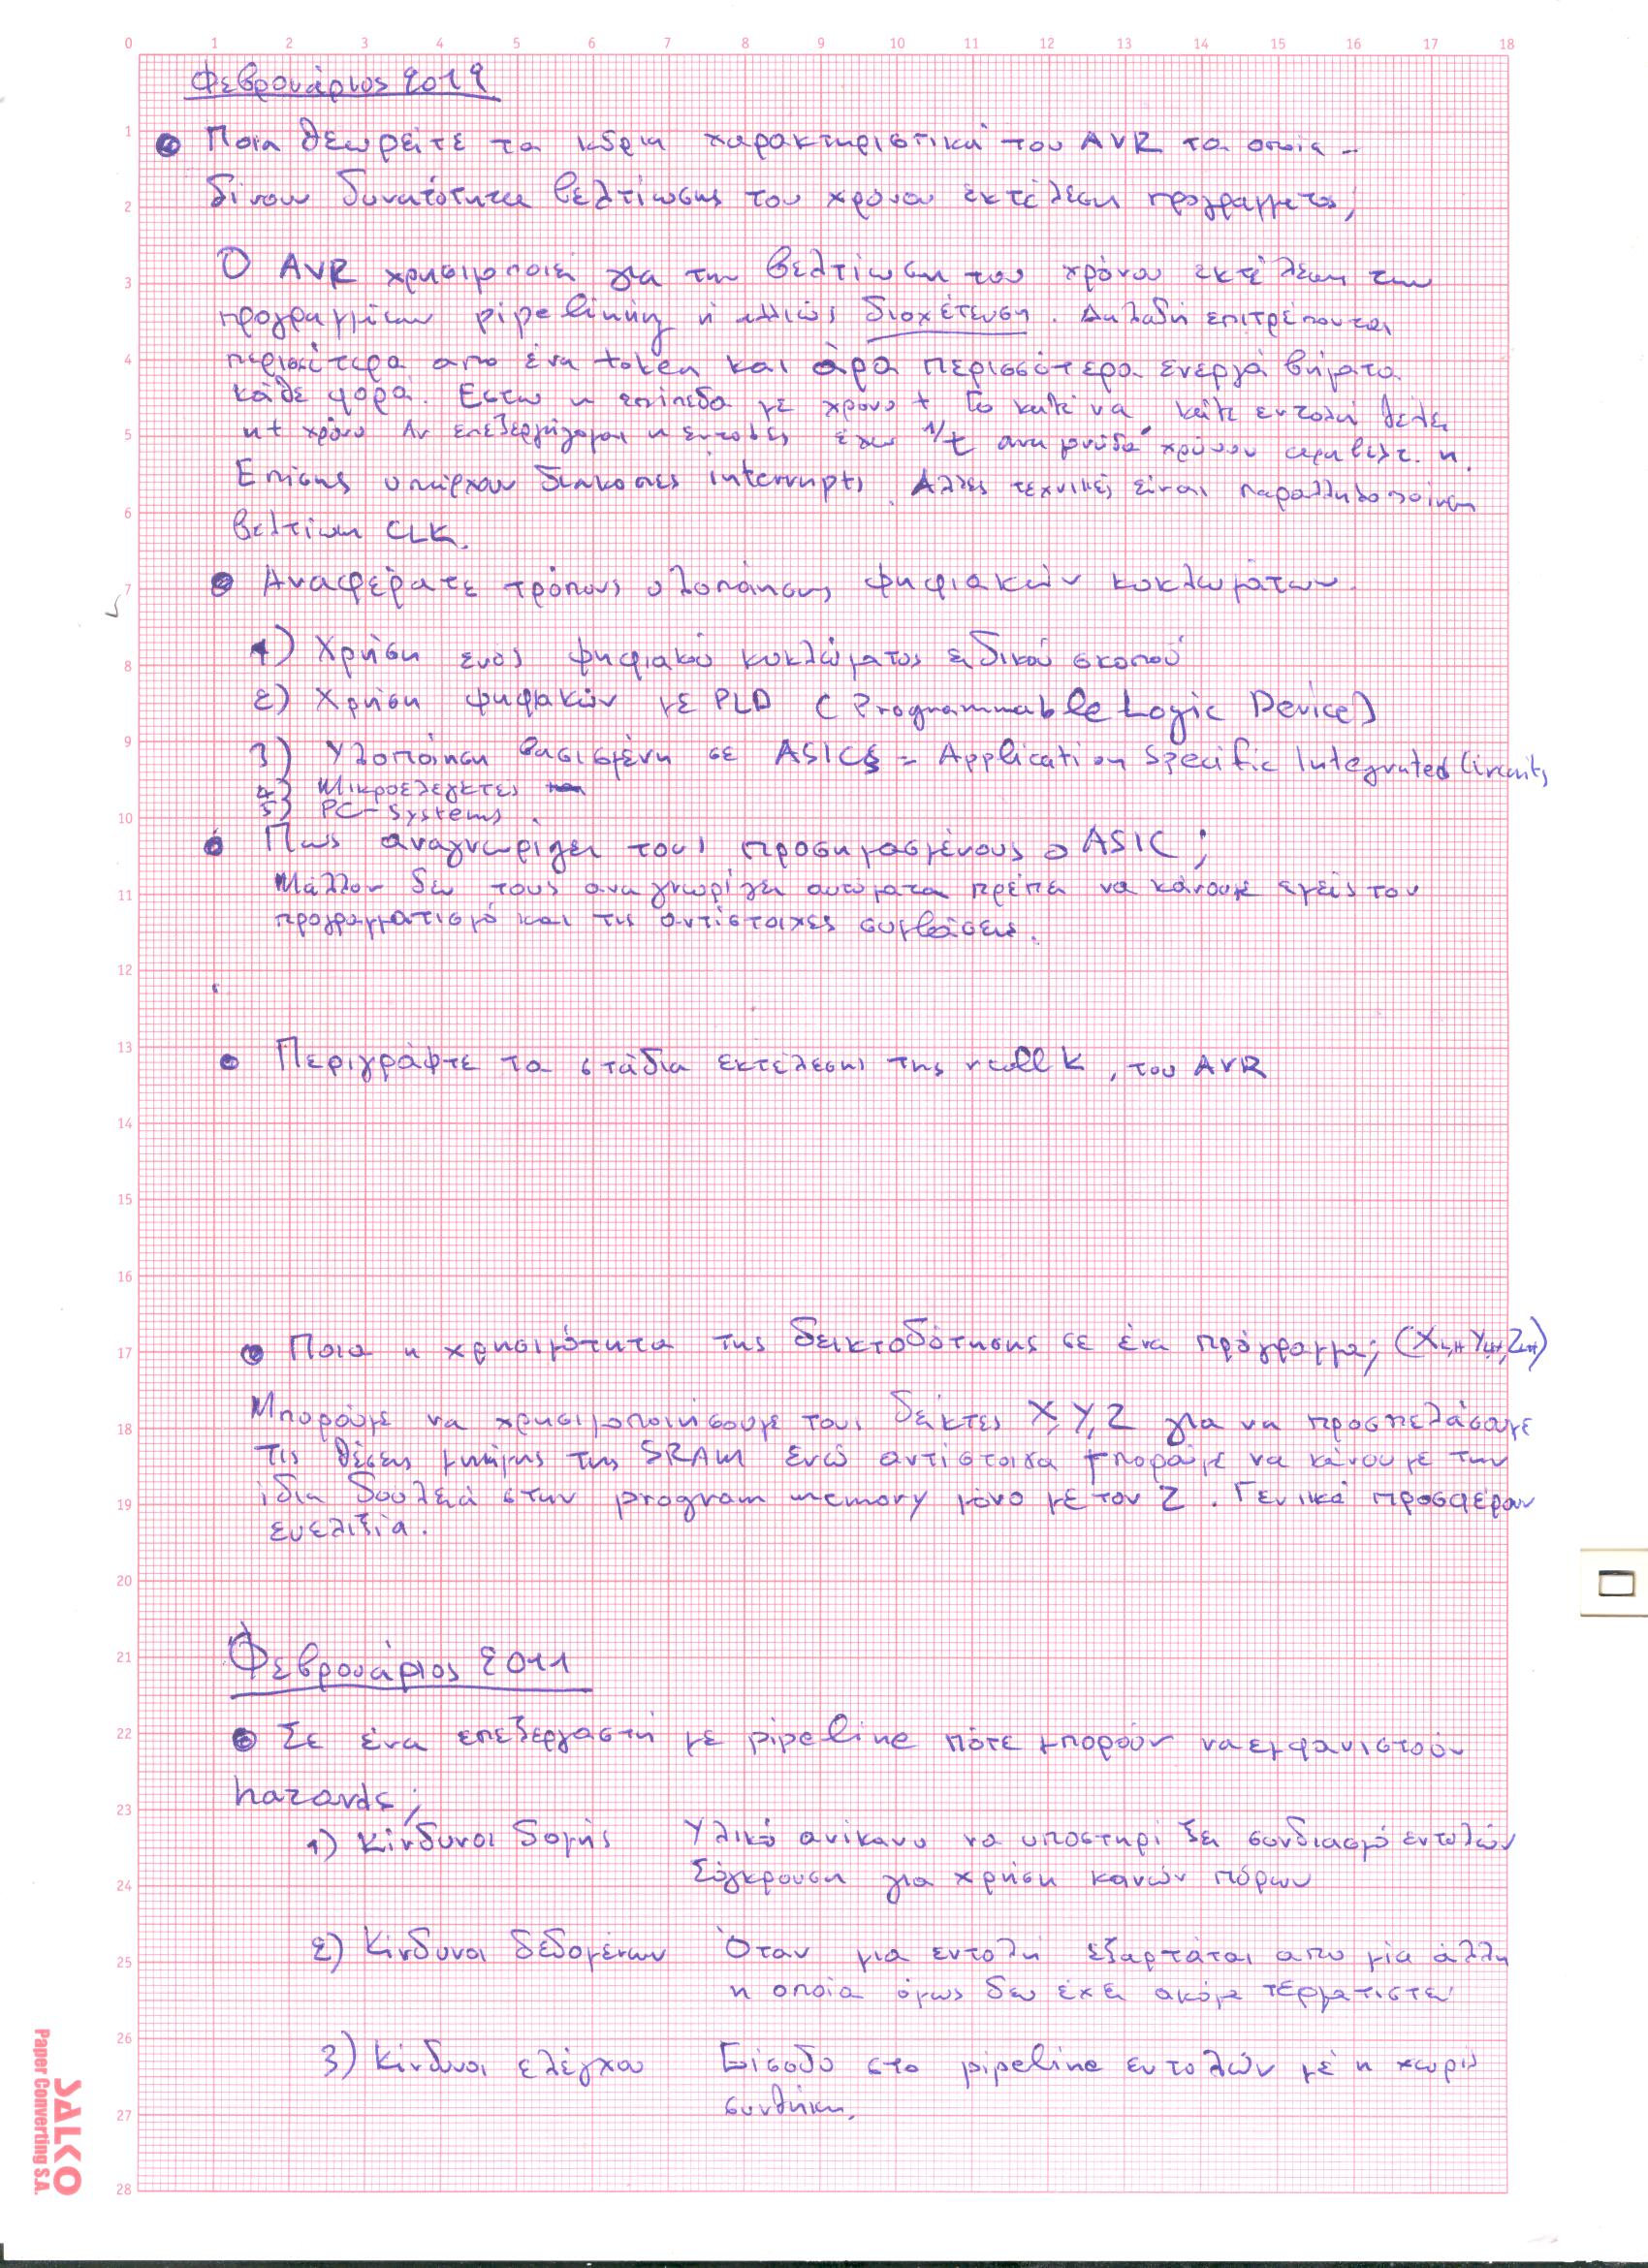 Φεβρουάριος 2019
Ποια θεωρείτε τα κύρια χαρακτηριστικά του AVR τα οποία
δίνουν δυνατότητα βελτίωσης του χρόνου εκτέλεση προγράμματος;
Ο AVR χρησιμοποιεί για την βελτίωση του χρόνου εκτέλεση των
προγραμμάτων pipelining ή αλλιώς διοχέτευση. Δηλαδή επιτρέπονται
περισσότερα απο ένα token και άρα περισσότερα ενεργά βήματα
κάθε φορά. Εστω n επίπεδα με χρονο t το καθένα κάθε εντολή θέλει
nt χρόνο Αν επεξεργάζομαι n εντολές έχω 1/t ανα μονάδα χρόνου αρα βελτ. n.
Επίσης υπάρχουν διακοπές interrupts. Αλλες τεχνικές είναι παραλληλοποίηση
βελτίωση CLK.
Αναφέρατε τρόπους υλοποίησης ψηφιακών κυκλωμάτων.
1) Χρήση ενός ψηφιακού κυκλώματος ειδικού σκοπού
2) Χρήση ψηφιακών με PLD (Programmable Logic Device)
3) Υλοποίηση βασισμένη σε ASICs = Application Specific Integrated Circuits
4) Μικροελεγκτες
5) PC-Systems.
Πως αναγνωρίζει τους προσημασμένους ο ASIC;
Μάλλον δεν τους αναγνωρίζει αυτόματα πρέπει να κάνουμε εμείς τον
προγραμματισμό και τις αντίστοιχες συμβάσεις.
Περιγράψτε τα στάδια εκτέλεσης της rcall k, του AVR
Ποια η χρησιμότητα της δεικτοδότησης σε ένα πρόγραμμα; (XL,H YL,H, ZL,H)
Μπορούμε να χρησιμοποιήσουμε τους δείκτες X, Y, Z για να προσπελάσουμε
τις θέσεις μνήμης της SRAM ενώ αντίστοιχα μπορούμε να κάνουμε την
ίδια δουλειά στην program memory μόνο με τον Z. Γενικά προσφέρουν
ευελιξία.
Φεβρουάριος 2011
Σε ένα επεξεργαστή με pipeline πότε μπορούν να εμφανιστούν
hazards;
1) Κίνδυνοι δομής Υλικό ανίκανο να υποστηρίξει συνδιασμό εντολών
Σύγκρουση για χρήση κοινών πόρων
2) Κίνδυνοι δεδομένων Όταν μια εντολη εξαρτάται απο μία άλλη
η οποία όμως δεν έχει ακόμα τερματιστει
3) Κίνδυνοι ελέγχου Είσοδο στο pipeline εντολών με η χωρις
συνθήκη.
SALKO
Paper Converting S.A.
0 1 2 3 4 5 6 7 8 9 10 11 12 13 14 15 16 17 18
1
2
3
4
5
6
7
8
9
10
11
12
13
14
15
16
17
18
19
20
21
22
23
24
25
26
27
28